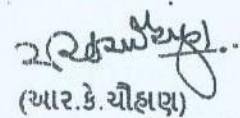 (આર.કે.ચૌહાણ)